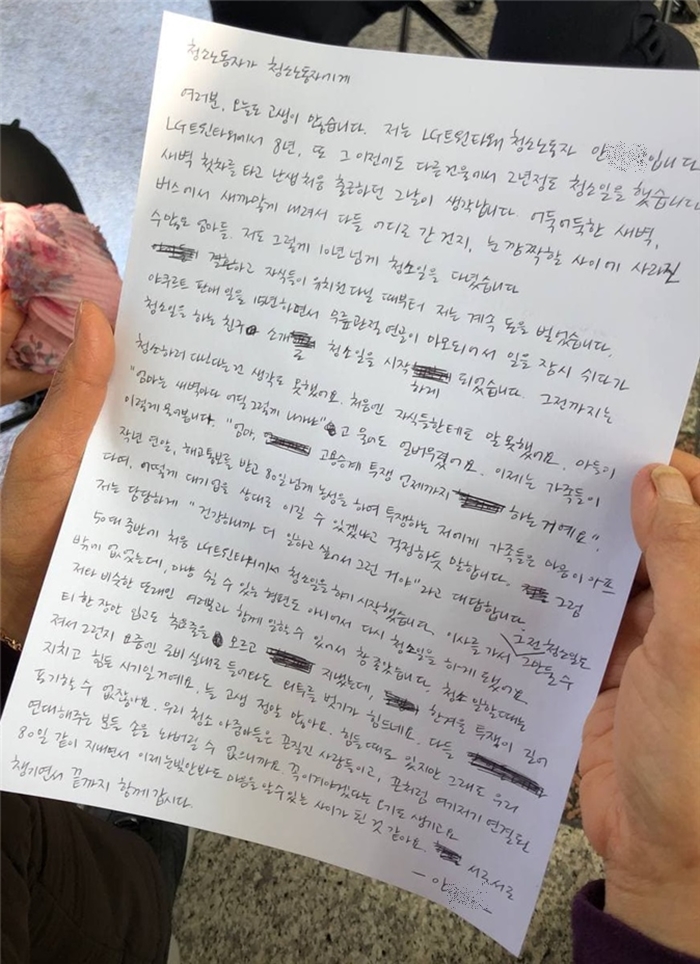 청소노동자가 청소노동자에게
여러분, 오늘도 고생이 많습니다. 저는 LG트윈타워 청소노동자 안 입니다
LG트윈타워에서 8년, 또 그 이전에도 다른건물에서 2년정도 청소일을 했습니다
새벽 첫차를 타고 난생처음 출근하던 그날이 생각납니다. 어둑어둑한 새벽,
버스에서 새까맣게 내려서 다들 어디로 간건지, 눈 깜짝할 사이에 사라진
수많은 엄마들. 저도 그렇게 10년 넘게 청소일을 다녔습니다
결혼하고 자식들이 유치원다닐 때부터 저는 계속 돈을 벌었습니다.
야쿠르트 판매 일을 15년하면서 무릎관절 연골이 마모되어서 일을 잠시 쉬다가
청소일을 하는 친구 소개로 청소일을 시작하게 되었습니다. 그전까지는
청소하러 다닌다는건 생각도 못했어요. 처음엔 자식들한테도 말 못했어요. 아들이
"엄마는 새벽마다 어딜 그렇게 나가냐"고 물어도 얼버무렸어요. 이제는 가족들이
이렇게 물어봅니다. "엄마, 고용승계 투쟁 언제까지 하는거예요".
작년 연말, 해고통보를 받고 80일넘게 농성을 하며 투쟁하는 저에게 가족들은 마음이 아프
다며, 어떻게 대기업을 상대로 이길 수 있겠냐고 걱정하듯 말합니다. 그럼
저는 담담하게 "건강하니까 더 일하고 싶어서 그런 거야"라고 대답합니다.
50대 중반에 처음 LG트윈타워에서 청소일을 하기 시작했습니다. 이사를 가서 그전 청소일도 그만둘 수
밖에 없었는데, 마냥 쉴 수 있는 형편도 아니어서 다시 청소일을 하게 됐어요
저와 비슷한 또래인 여러분과 함께 일할 수 있어서 참 좋았습니다. 청소 일할때는
티 한장만 입고도 추운줄을 모르고 지냈는데, 한겨울 투쟁이 길어
져서 그런지 요즘엔 로비 실내로 들어와도 외투를 벗기가 힘드네요. 다들
지치고 힘드 시기일거예요. 늘 고생 정말 많아요. 힘들때도 있지만 그래도 우리
포기할 수 없잖아요. 우리 청소 아줌마들은 끈질긴 사람들이고, 끈처럼 여기저기 연결된
연대해주는 모든 손을 놔버릴 수 없으니까요. 꼭이겨야겠다는 다기도 생기고요
80일 같이 지내면서 이제 눈빛만봐도 마음을 알수있는 사이가 된 것 같아요. 서로서로
챙기면서 끝까지 함께 갑시다.
— 안